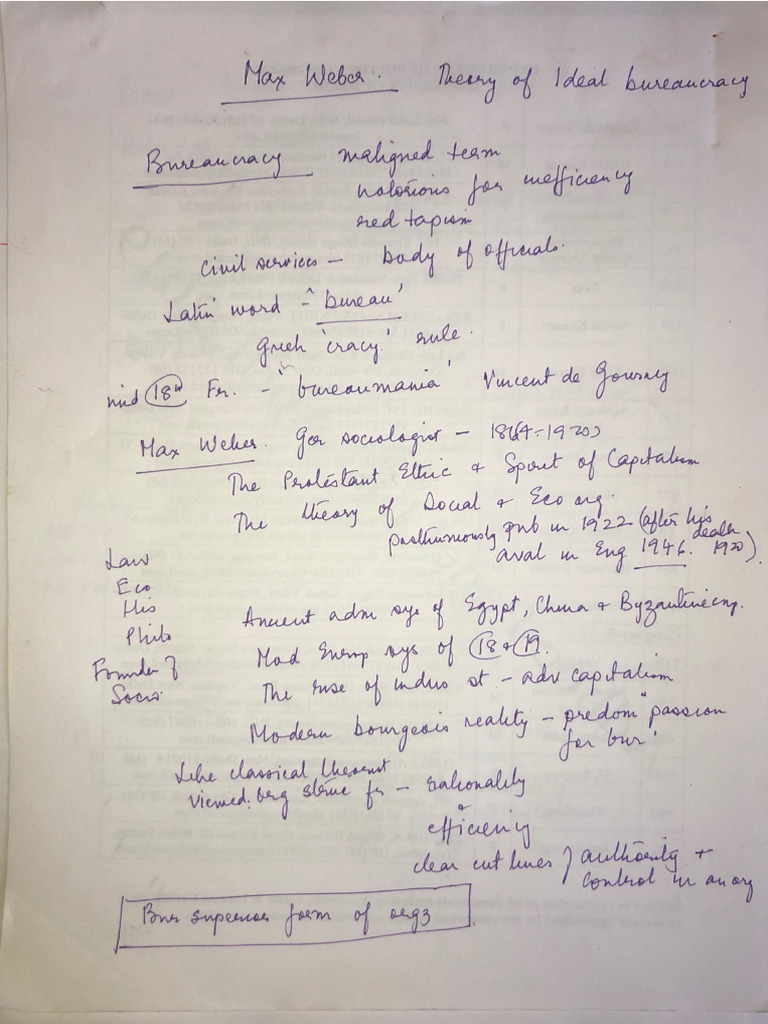 Max Weber. Theory of Ideal bureaucracy
Bureaucracy maligned team
notorious for inefficiency
red tapism
civil services - body of officials.
Latin word - 'bureau'
Greek 'cracy' rule.
mid 18th Fr. - "bureaumania" Vincent de Gourney
Max Weber. Ger sociologist - (1864-1920)
The Protestant Ethic & Spirit of Capitalism
The theory of Social & Eco org.
posthumously pub in 1922 (after his death 1920)
aval in Eng 1946.
Law
Eco
His
Philo
Founder of
Socio.
Ancient adm sys of Egypt, China & Byzantine emp.
Mod Europ sys of 18 & 19.
The rise of indus st - adv capitalism
Modern bourgeois reality - predom "passion
for bur"
Like classical theorist
viewed: org struc fr - rationality
&
efficiency
clear cut lines of authority &
control in an org
Bur superior form of orgz